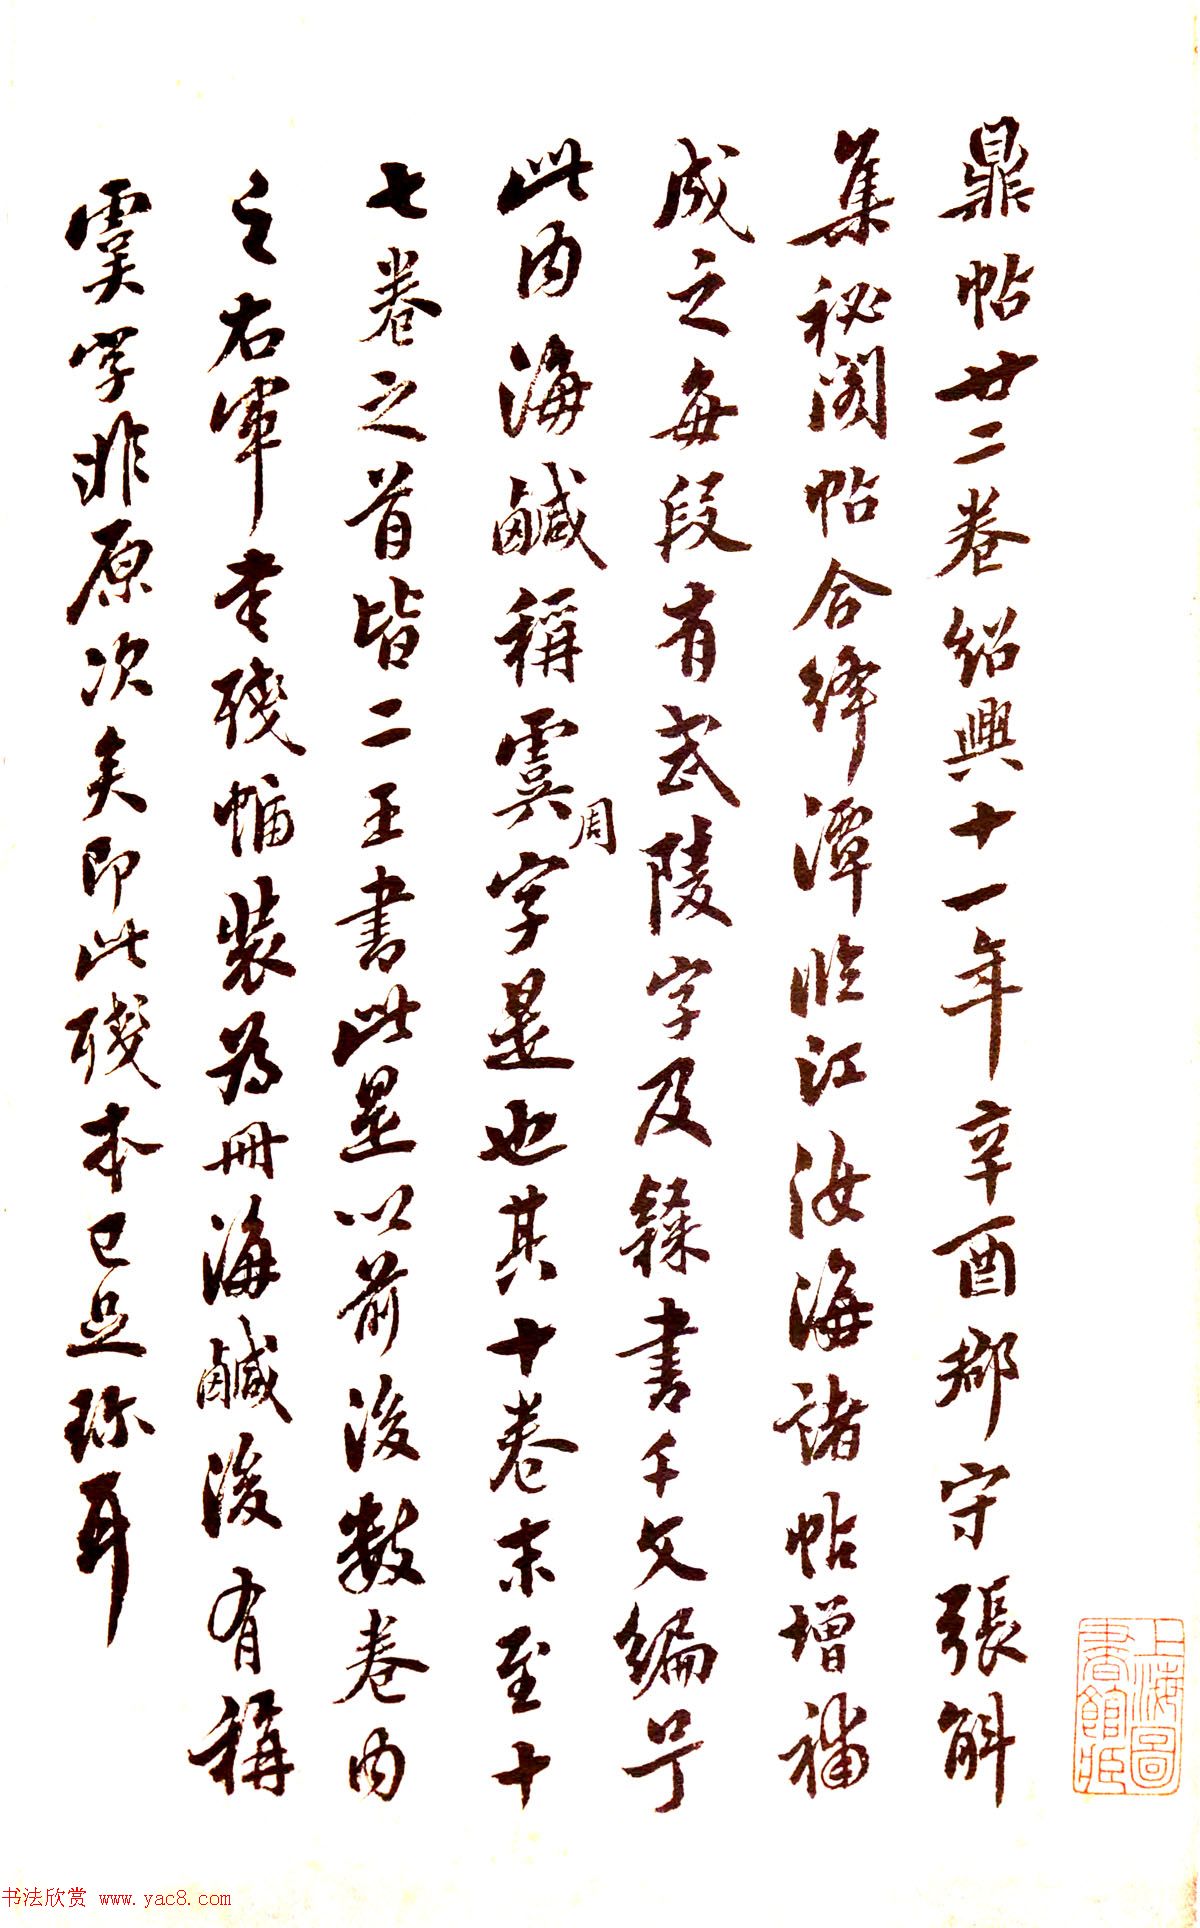 鼎帖廿二卷紹興十一年辛酉郡守張斛
集秘閣帖合絳潭臨江汝海諸帖增補
成之每段有武陵字及隸書千文編号
此內海鹹稱虞字是也其十卷末至十
周
七卷之首皆二王書此是以前後數卷內
之右軍書殘幅裝為冊海鹹後有稱
虞字非原次矣即此殘本已足珍耳
上海圖
書館藏
书法欣赏 www.yac8.com